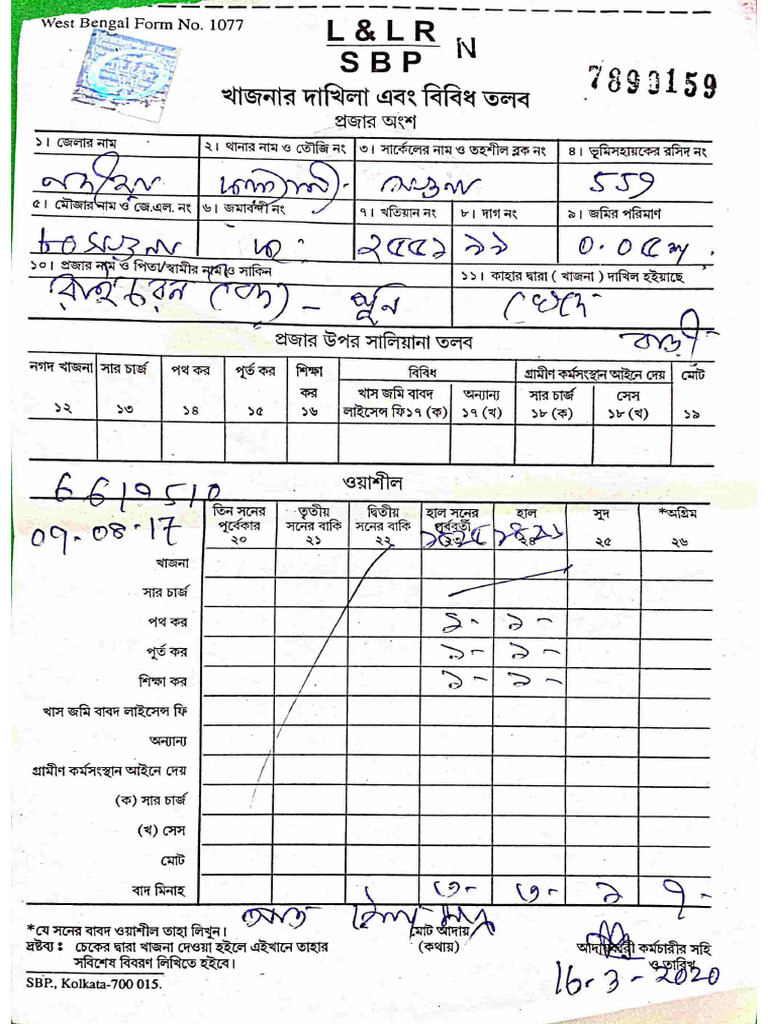 West Bengal Form No. 1077
L & L R
S B P
N
7890159
খাজনার দাখিলা এবং বিবিধ তলব
প্রজার অংশ
১। জেলার নাম ২। থানার নাম ও তৌজি নং ৩। সার্কেলের নাম ও তহশীল ব্লক নং ৪। ভূমিসহায়কের রসিদ নং
559
৫। মৌজার নাম ও জে.এল. নং ৬। জমাবন্দী নং ৭। খতিয়ান নং ৮। দাগ নং ৯। জমির পরিমাণ
২৫৫১ ৯৯ 0.05
১০। প্রজার নাম ও পিতা/স্বামীর নাম ও সাকিন ১১। কাহার দ্বারা ( খাজনা ) দাখিল হইয়াছে
প্রজার উপর সালিয়ানা তলব
নগদ খাজনা সার চার্জ পথ কর পূর্ত কর শিক্ষা কর বিবিধ গ্রামীণ কর্মসংস্থান আইনে দেয় মোট
খাস জমি বাবদ লাইসেন্স ফি১৭ (ক) অন্যান্য ১৭ (খ) সার চার্জ ১৮ (ক) সেস ১৮ (খ)
১২ ১৩ ১৪ ১৫ ১৬ ১৯
ওয়াশীল
6619510
09-08-17
তিন সনের পূর্বেকার তৃতীয় সনের বাকি দ্বিতীয় সনের বাকি হাল সনের পূর্ববর্তী হাল সুদ *অগ্রিম
২০ ২১ ২২ ২৩ ২৪ ২৫ ২৬
খাজনা
সার চার্জ
পথ কর ১- ১-
পূর্ত কর ১- ১-
শিক্ষা কর ১- ১-
খাস জমি বাবদ লাইসেন্স ফি
অন্যান্য
গ্রামীণ কর্মসংস্থান আইনে দেয়
(ক) সার চার্জ
(খ) সেস
মোট
বাদ মিনাহ ৩- ৩- ১ ৭-
*যে সনের বাবদ ওয়াশীল তাহা লিখুন। মোট আদায় আদায়কারী কর্মচারীর সহি
দ্রষ্টব্য : চেকের দ্বারা খাজনা দেওয়া হইলে এইখানে তাহার (কথায়) ও তারিখ
সবিশেষ বিবরণ লিখিতে হইবে।
16-3-2020
SBP., Kolkata-700 015.